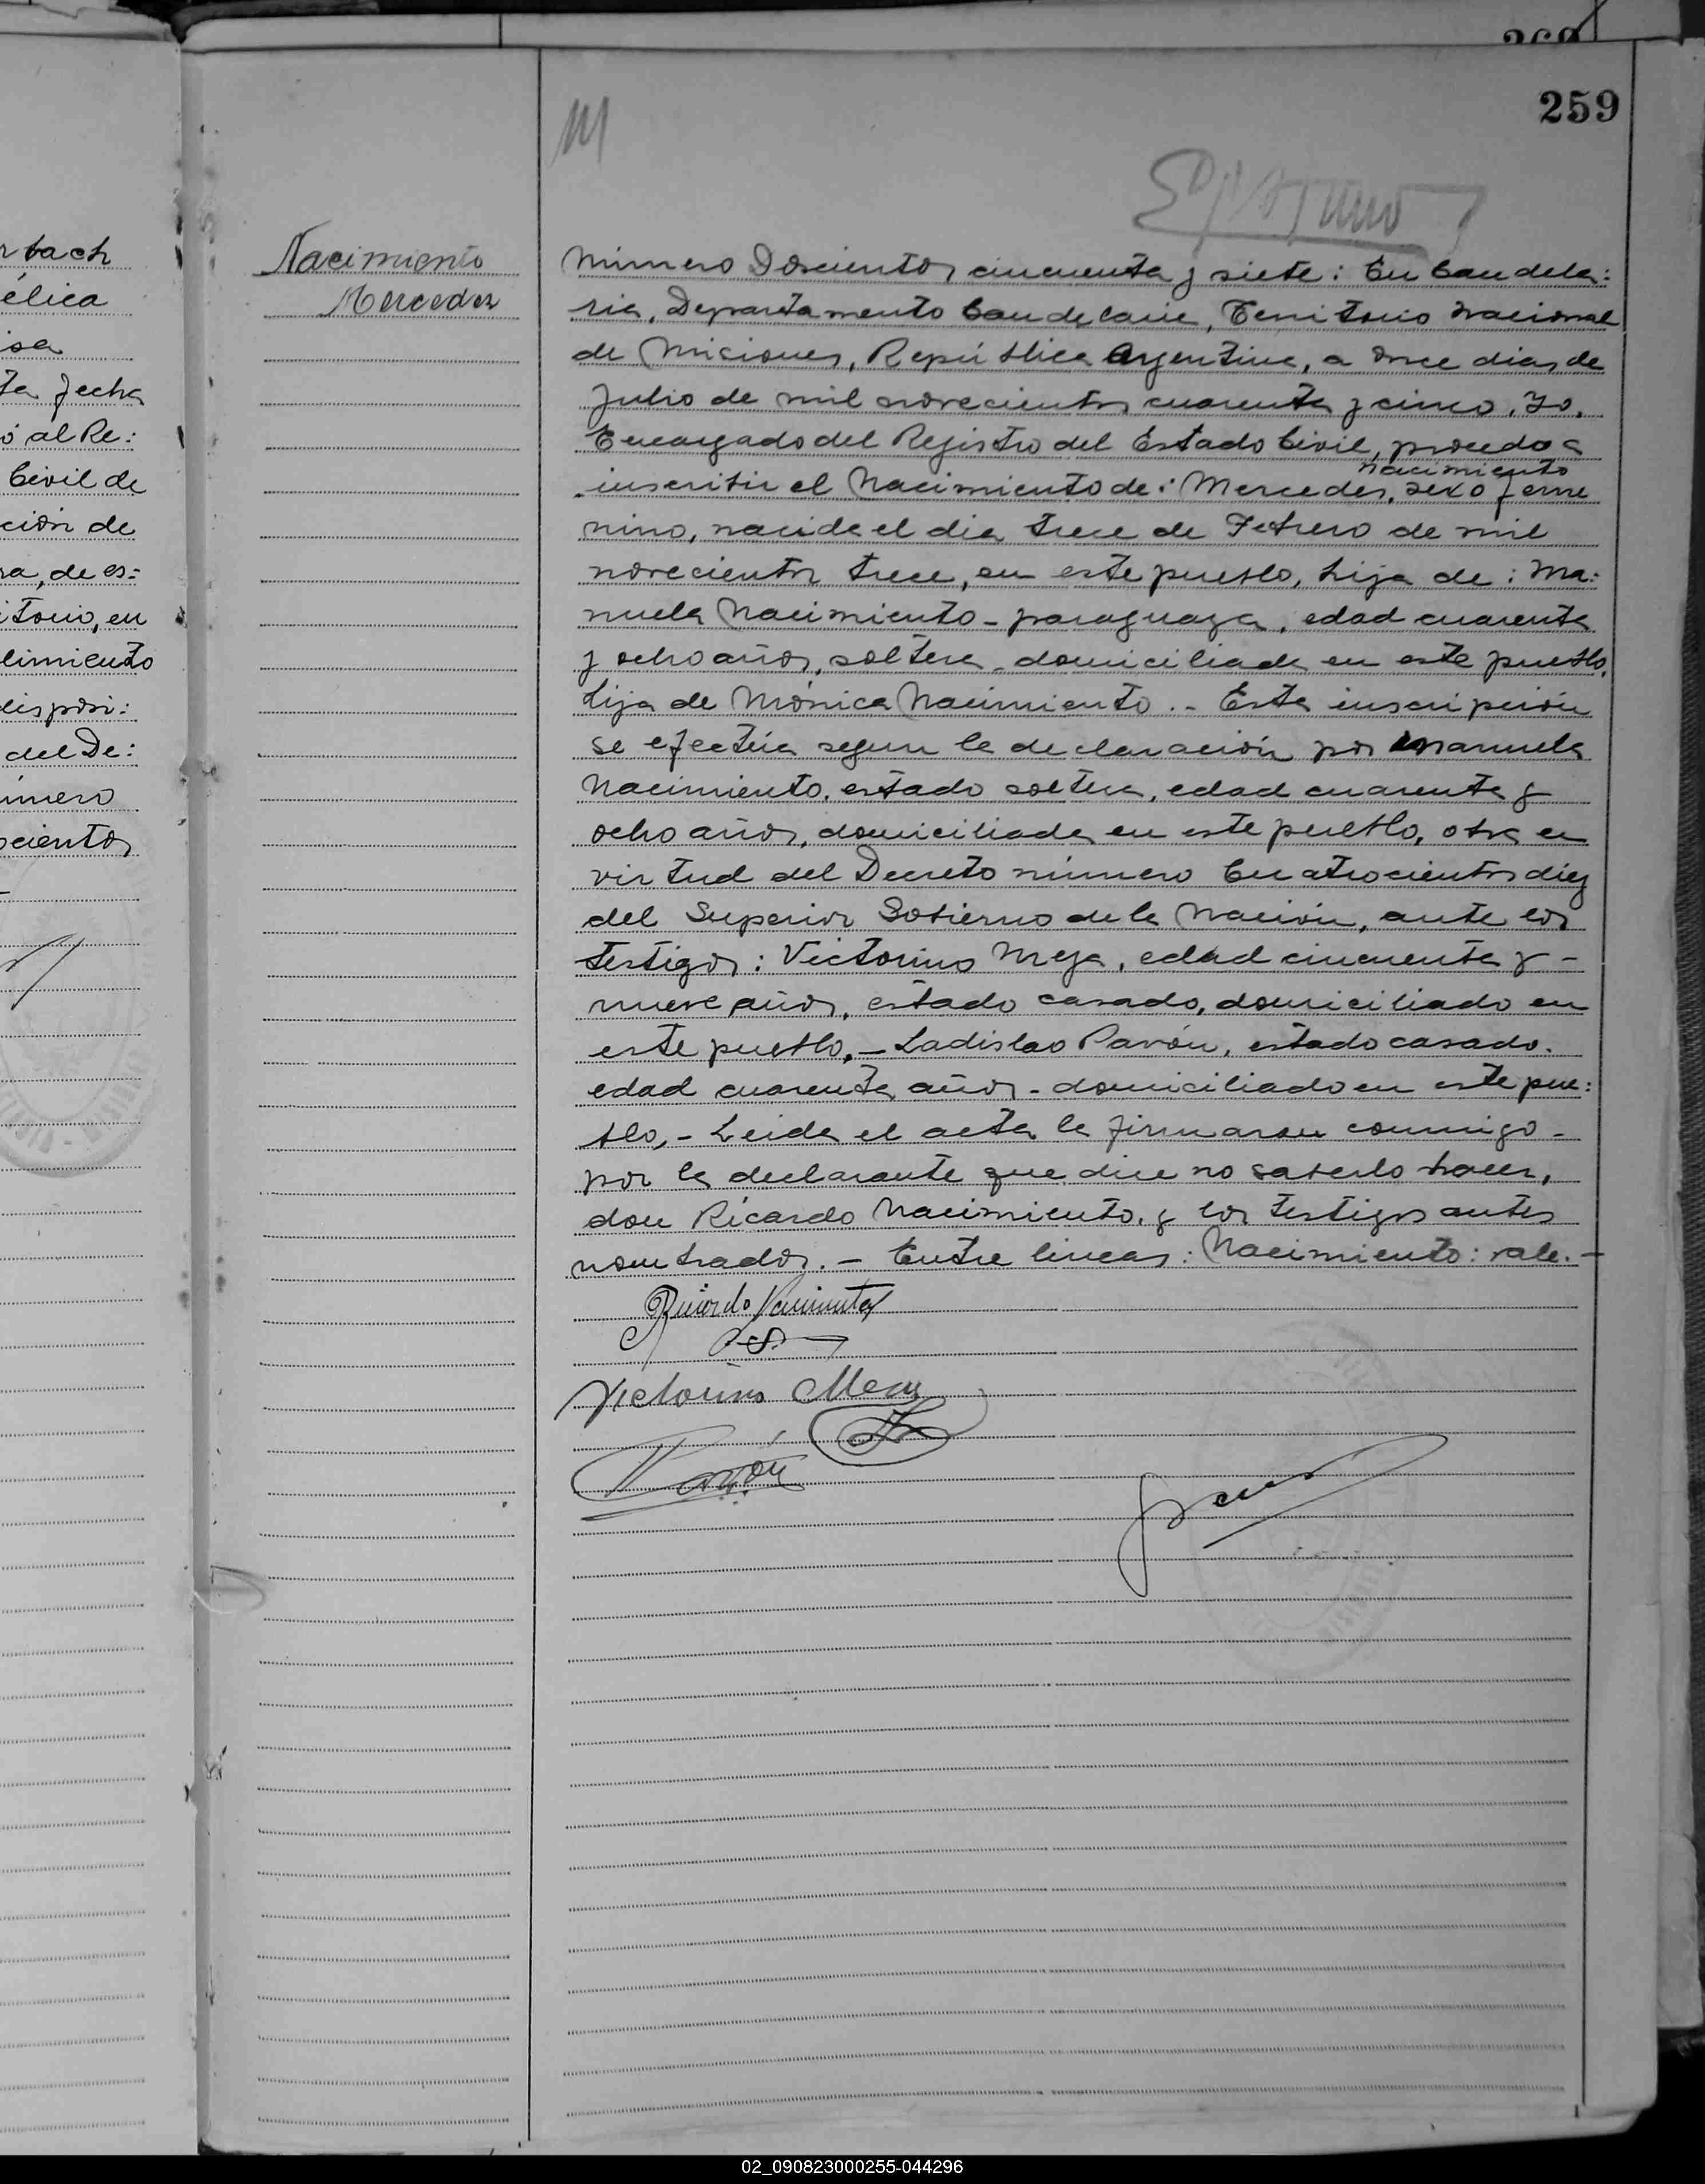 259
rtach
élica
isa
ta fecha
ó al Re:
Civil de
ción de
ra, de es=
itorio, en
limiento
disposi:
del De:
úmero
scientos
Nacimiento
Mercedes
Número Doscientos cincuenta y siete: En Candela:
ria, Departamento Candelaria, Territorio Nacional
de Misiones, República Argentina, a once dias de
Julio de mil novecientos cuarenta y cinco, Yo,
Encargado del Registro del Estado Civil, procedo a
nacimiento
inscribir el Nacimiento de: Mercedes, sexo feme
nino, nacida el dia trece de Febrero de mil
novecientos trece, en este pueblo, hija de: Ma:
nuela Nacimiento - paraguaya, edad cuarenta
y ocho años, soltera - domiciliada en este pueblo,
hija de Mónica Nacimiento. - Esta inscripción
se efectúa segun la declaración por Manuela
Nacimiento, estado soltera, edad cuarenta y
ocho años, domiciliada en este pueblo, obra en
virtud del Decreto número Cuatrocientos diez
del Superior Gobierno de la Nación, ante los
testigos: Victorino Meza, edad cincuenta y -
nueve años, estado casado, domiciliado en
este pueblo, - Ladislao Pavón, estado casado.
edad cuarenta años - domiciliado en este pue:
blo, - Leida el acta la firmaron conmigo -
por la declarante que dice no saberlo hacer,
don Ricardo Nacimiento, y los testigos antes
nombrados. - Entre lineas: Nacimiento: vale. -
Ricardo Nacimiento
Victorino Meza
Pavón
02_090823000255-044296